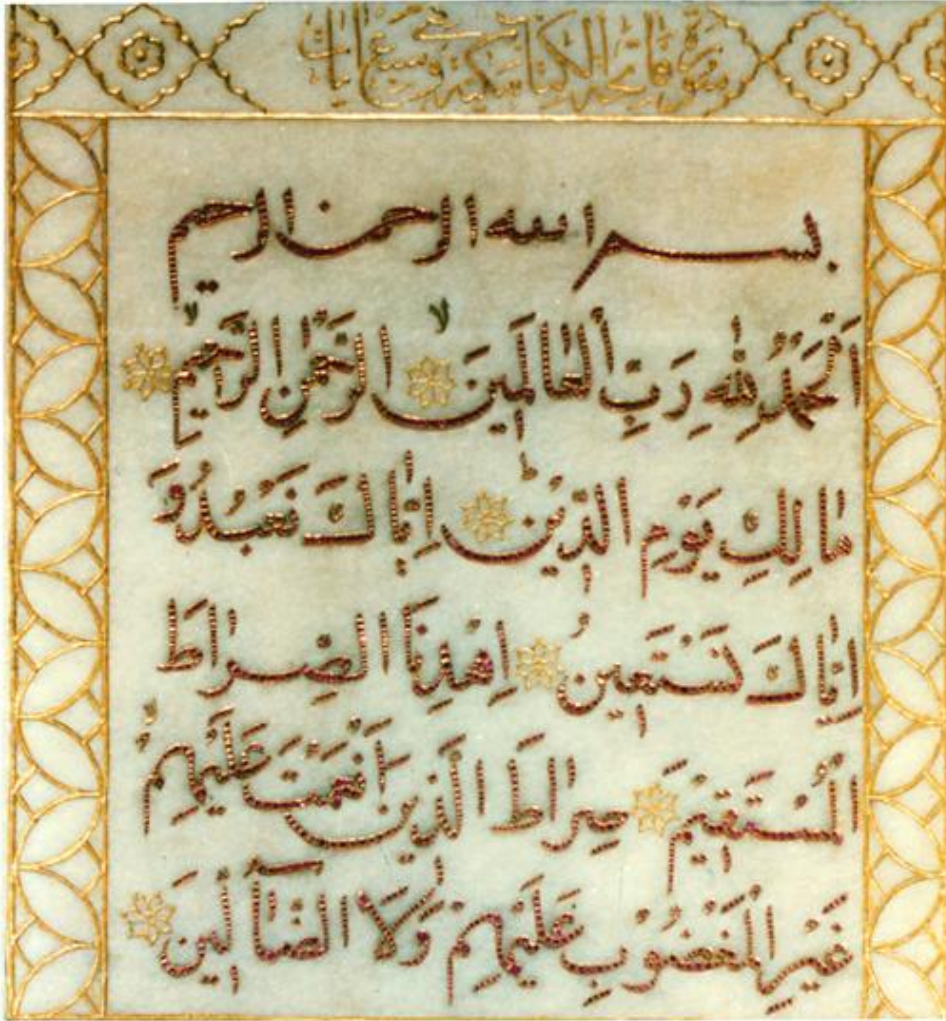 سورة فاتحة الكتاب مكية وهى سبع ايات
بسم الله الرحمن الرحيم
اَلْحَمْدُ لِلّٰهِ رَبِّ الْعَالَمِينَ الرَّحْمٰنِ الرَّحِيمِ
مَالِكِ يَوْمِ الدِّينِ اِيَّاكَ نَعْبُدُ وَ
اِيَّاكَ نَسْتَعِينُ اِهْدِنَا الصِّرَاطَ
الْمُسْتَقِيمَ صِرَاطَ الَّذِينَ اَنْعَمْتَ عَلَيْهِمْ
غَيْرِ الْمَغْضُوبِ عَلَيْهِمْ وَلَا الضَّآلِّينَ